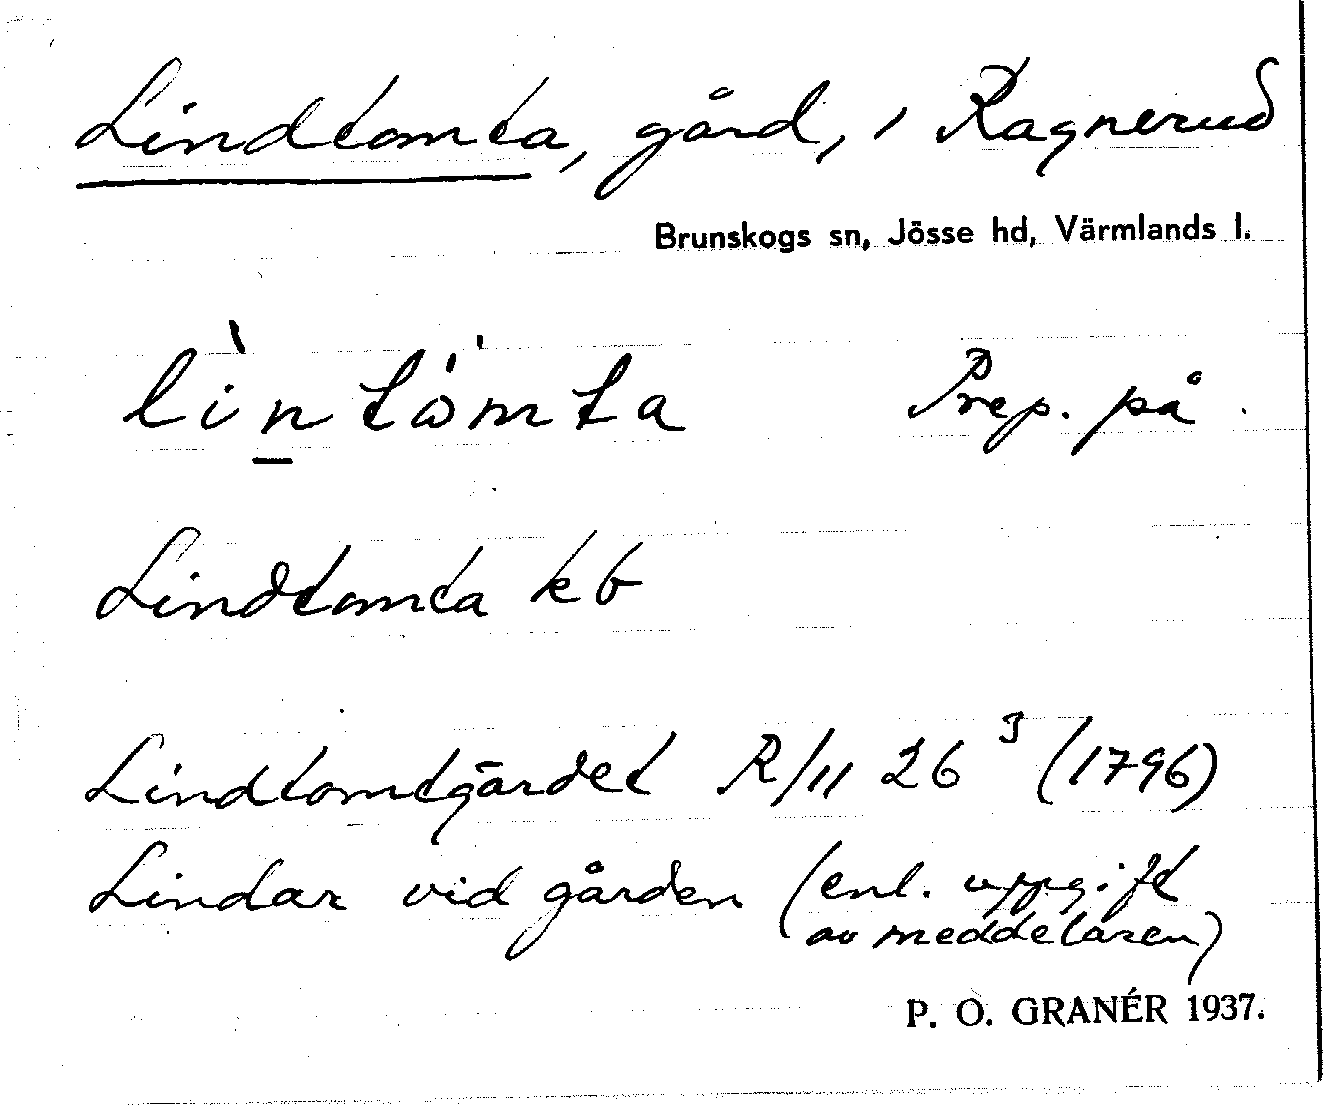 Lindtomta, gård, i Ragnerud
Brunskogs sn, Jösse hd, Värmlands l.
lìntómta Prep. på.
Lindtomta kb
Lindtomtgärdet R/11 26³ (1796)
Lindar vid gården (enl. uppgift
av meddelaren)
P. O. GRANÉR 1937.